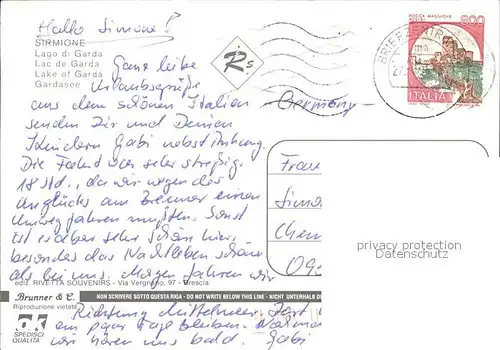 Hallo Simone!
SIRMIONE
Lago di Garda
Lac de Garda
Lake of Garda
Gardasee
Rs
ROCCA MAGGIORE
800
ITALIA
BRIEFZENTR
Germany
Ganz liebe
Urlaubsgrüße
aus dem schönen Italien
senden Dir und Deinen
Kindern Gabi nebst Anhang.
Die Fahrt war sehr streßig.
18 Std., da wir wegen des
Unglücks am Brenner einen
Umweg fahren mußten. Sonst
ist es aber sehr schön hier,
besonders das Nachtleben schöner
als bei uns. Morgen fahren wir
ediz. RIVETTA SOUVENIRS - Via Vergnano, 97 - Brescia
Brunner & C.
NON SCRIVERE SOTTO QUESTA RIGA - DO NOT WRITE BELOW THIS LINE - NICHT UNTERHALB
Riproduzione vietata
SPEDISCI
QUALITA
Richtung Mittelmeer. Dort
ein paar Tage bleiben.
wir hören uns bald. Gabi
Frau
Simo
Chem
privacy protection
Datenschutz